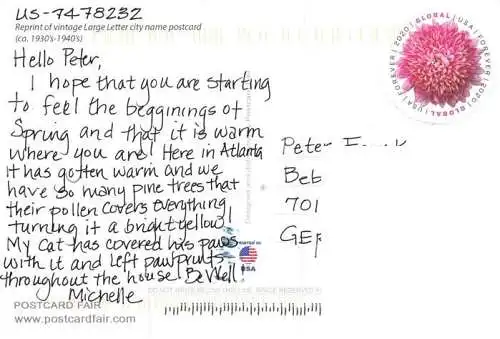 US-7478232
Reprint of vintage Large Letter city name postcard
(ca. 1930's-1940's)
Hello Peter,
I hope that you are starting
to feel the begginings of
Spring and that it is warm
where you are! Here in Atlanta
it has gotten warm and we
have so many pine trees that
their pollen covers everything
turning it a bright yellow!
My cat has covered his paws
with it and left pawprints
throughout the house. Be Well
Michelle
POSTCARD FAIR
www.postcardfair.com
USA | FOREVER | 2020 | GLOBAL | USA | FOREVER | 2020 | GLOBAL
Peter
Beb
701
GER
Printed in
USA
DO NOT WRITE BELOW THIS LINE.